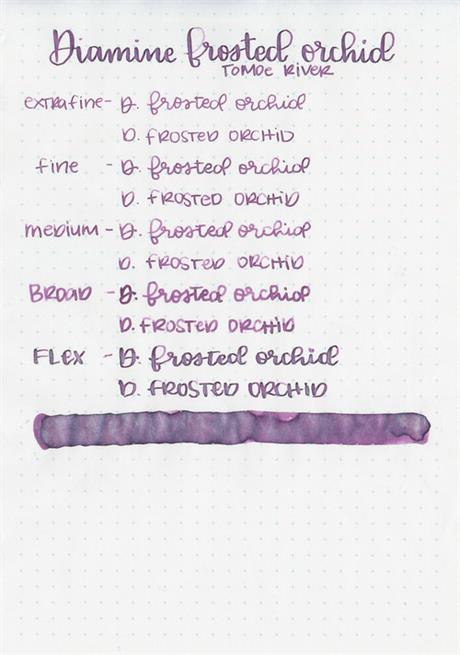 Diamine frosted orchid
TOMOE RIVER
extrafine - D. frosted orchid
D. FROSTED ORCHID
fine - D. frosted orchid
D. FROSTED ORCHID
medium - D. frosted orchid
D. FROSTED ORCHID
BROAD - D. frosted orchid
D. FROSTED ORCHID
FLEX - D. frosted orchid
D. FROSTED ORCHID